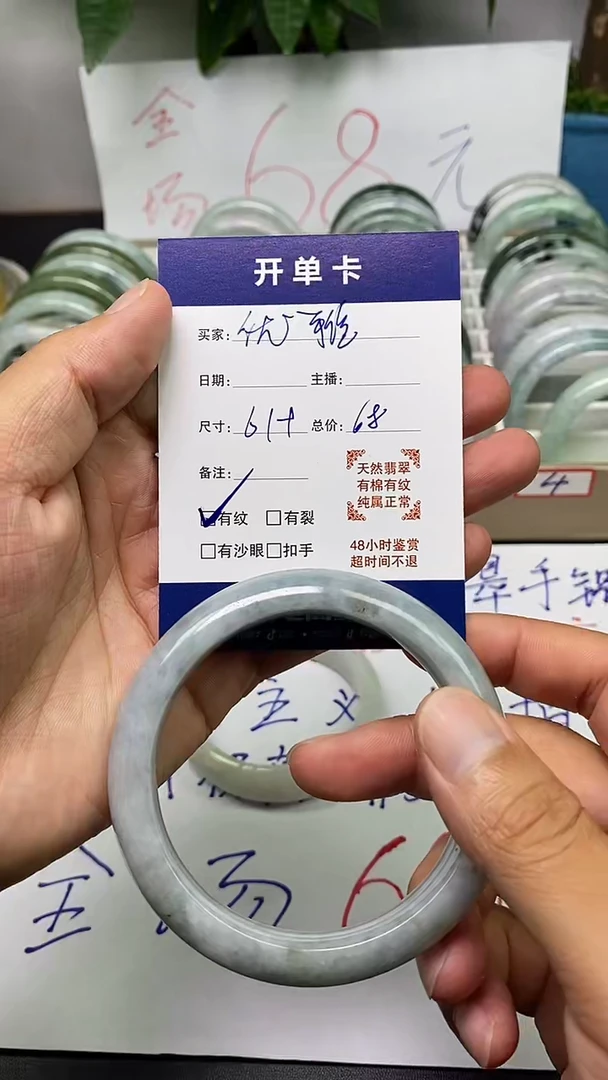 全
场 68 元
开单卡
买家：优雅
日期： 主播：
尺寸：61+ 总价：68
备注：
天然翡翠
有棉有纹
纯属正常
☑有纹 □有裂
□有沙眼□扣手
48小时鉴赏
超时间不退
4
翠手镯
主义
全场 6